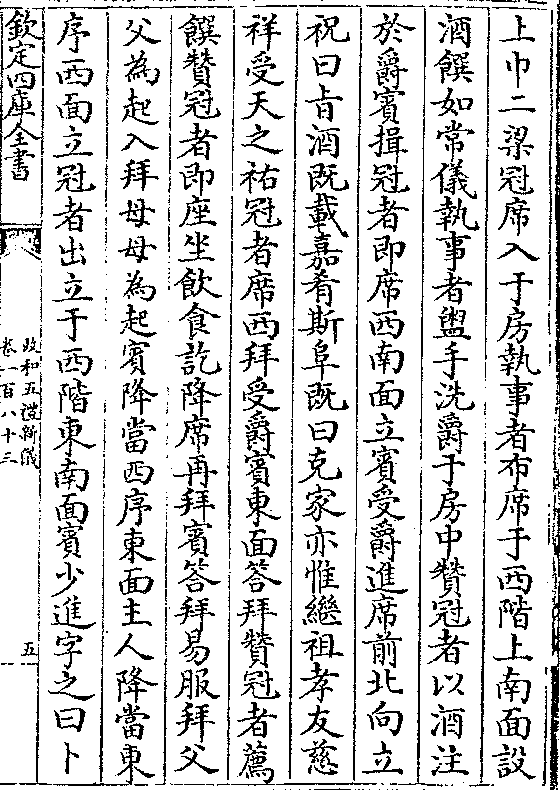 上巾二梁冠席入于房執事者布席于西階上南面設
酒饌如常儀執事者盥手洗爵于房中贊冠者以酒注
於爵賓揖冠者即席西南面立賓受爵進席前北向立
祝曰㫖酒既載嘉肴斯阜既曰克家亦惟繼祖孝友慈
祥受天之祐冠者席西拜受爵賓東面答拜贊冠者薦
饌贊冠者即座坐飲食訖降席再拜賓答拜易服拜父
父為起入拜母母為起賓降當西序東面主人降當東
序西面立冠者出立于西階東南面賓少進字之曰卜
欽定四庫全書
政和五禮新儀
卷一百八十三
五